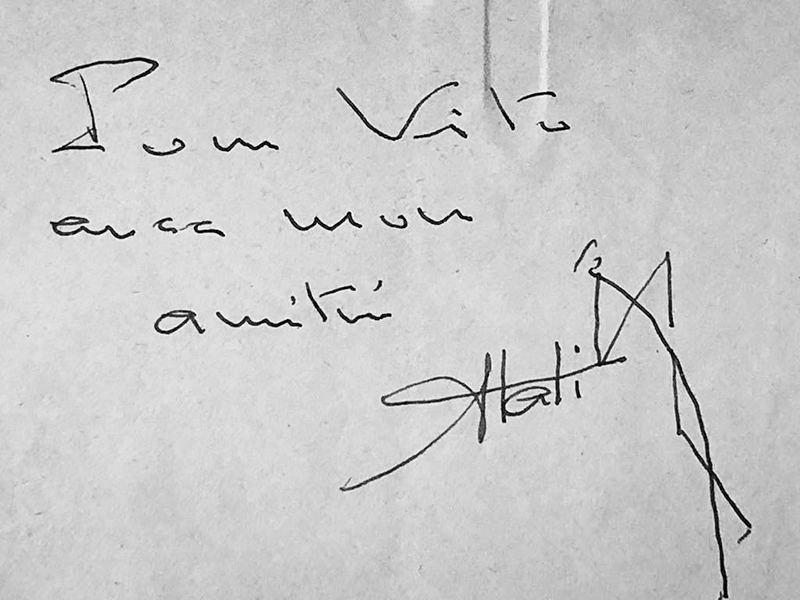 Pour Vito
avec mon
amitié